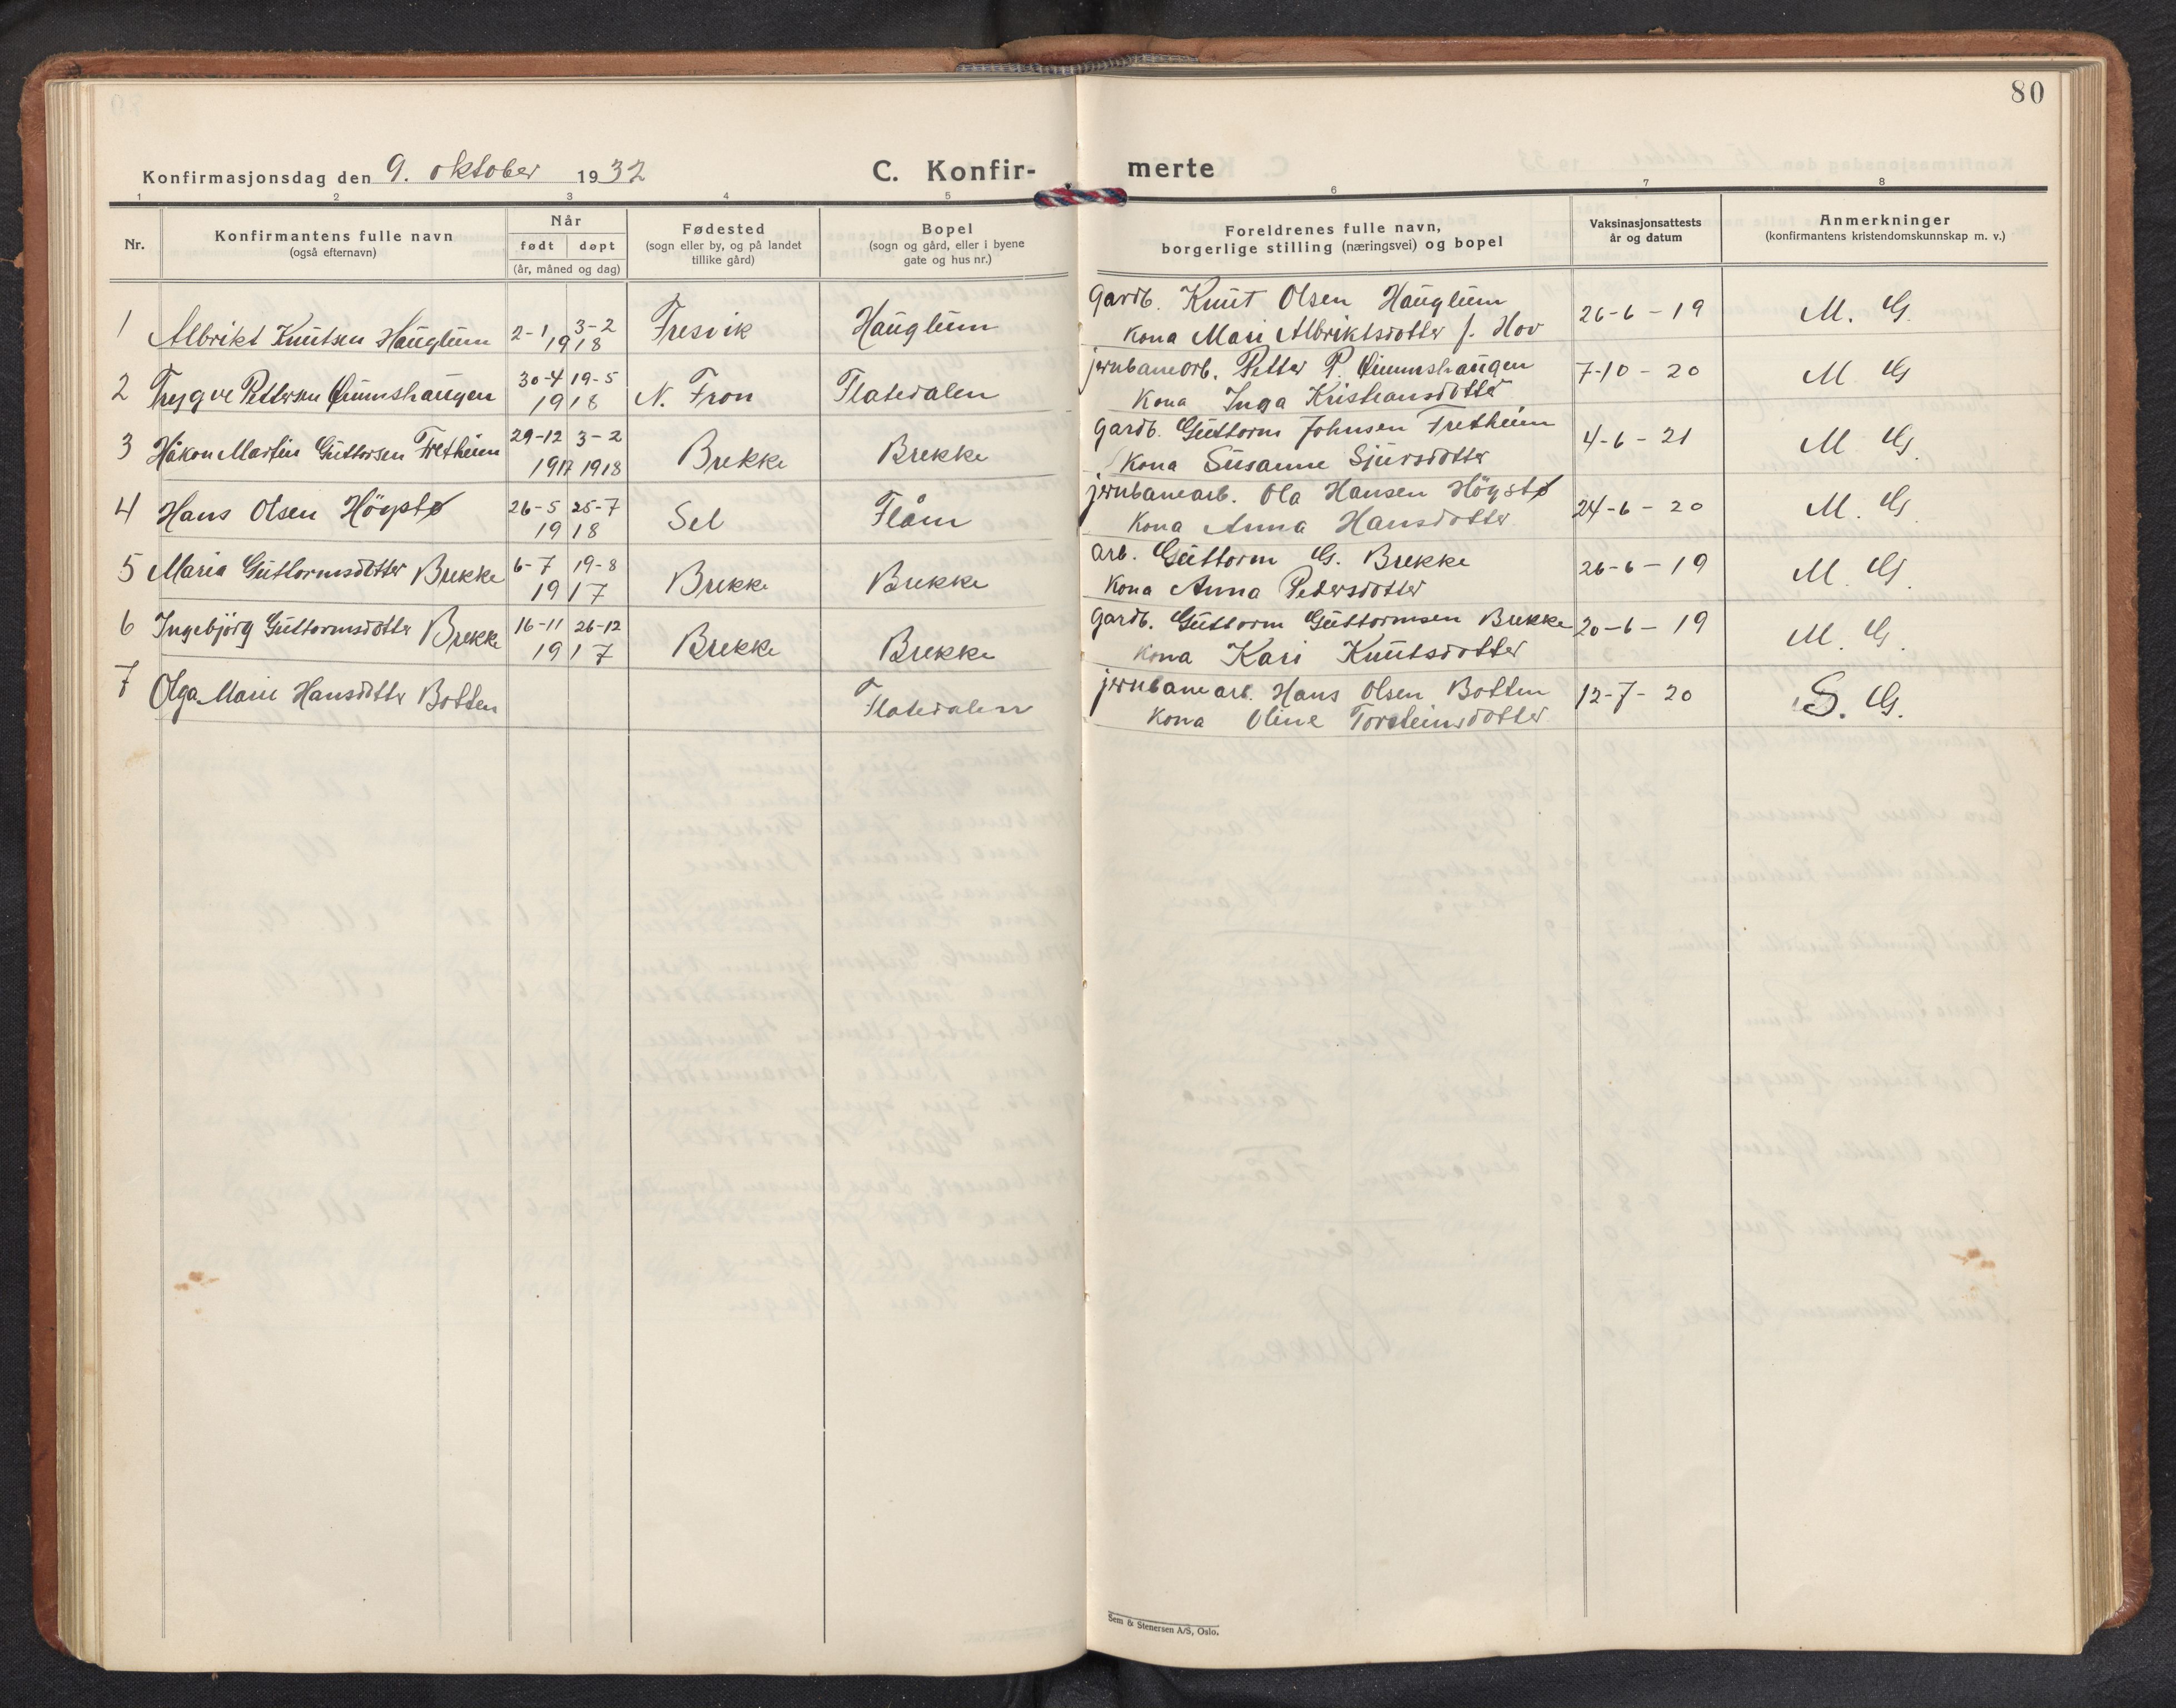 80
Konfirmasjonsdag den 9. oktober 1932
C. Konfir-merte
1 2 3 4 5 6 7 8
Nr.
Konfirmantens fulle navn
(også efternavn)
Når
født døpt
(år, måned og dag)
Fødested
(sogn eller by, og på landet
tillike gård)
Bopel
(sogn og gård, eller i byene
gate og hus nr.)
Foreldrenes fulle navn,
borgerlige stilling (næringsvei) og bopel
Vaksinasjonsattests
år og datum
Anmerkninger
(konfirmantens kristendomskunnskap m. v.)
1 Albrikt Knutsen Hauglum 2-1 3-2 1918 Fresvik Hauglum
gardb. Knut Olsen Hauglum
kona Mari Albriktsdotter f. Hov
26-6-19 M. G.
2 Trygve Pettersen 30-4 19-5 1918 N. Fron Flatedalen
jernbanearb. Petter P.
kona Inga Kristiansdotter
7-10-20 M G
3 Håkon Martin Guttorsen Fretheim 29-12 1917 3-2 1918 Brekke Brekke
gardb. Guttorm Johnsen Fretheim
kona Susanne Sjursdotter
4-6-21 M G.
4 Hans Olsen Högstø 26-5 25-7 1918 Sel Flåm
jernbanearb. Ola Hansen Högstø
kona Anna Hansdotter
24-6-20 M. G.
5 Maria Guttormsdotter Brekke 6-7 19-8 1917 Brekke Brekke
arb. Guttorm G. Brekke
kona Anna Pedersdotter
26-6-19 M. G.
6 Ingebjörg Guttormsdotter Brekke 16-11 26-12 1917 Brekke Brekke
gardb. Guttorm Guttormsen Brekke
kona Kari Knutsdotter
20-6-19 M. G.
7 Olga Marie Hansdotter Botten Flatedalen
jernbanearb. Hans Olsen Botten
kona Oline Torsteinsdotter
12-7-20 S. G.
Sem & Stenersen A/S, Oslo.